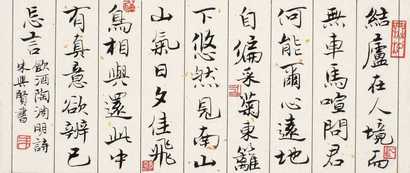 結廬在人境而
無車馬喧問君
何能爾心遠地
自偏采菊東籬
下悠然見南山
山氣日夕佳飛
鳥相與還此中
有真意欲辨已
忘言
飲酒陶淵明詩
朱興賢書